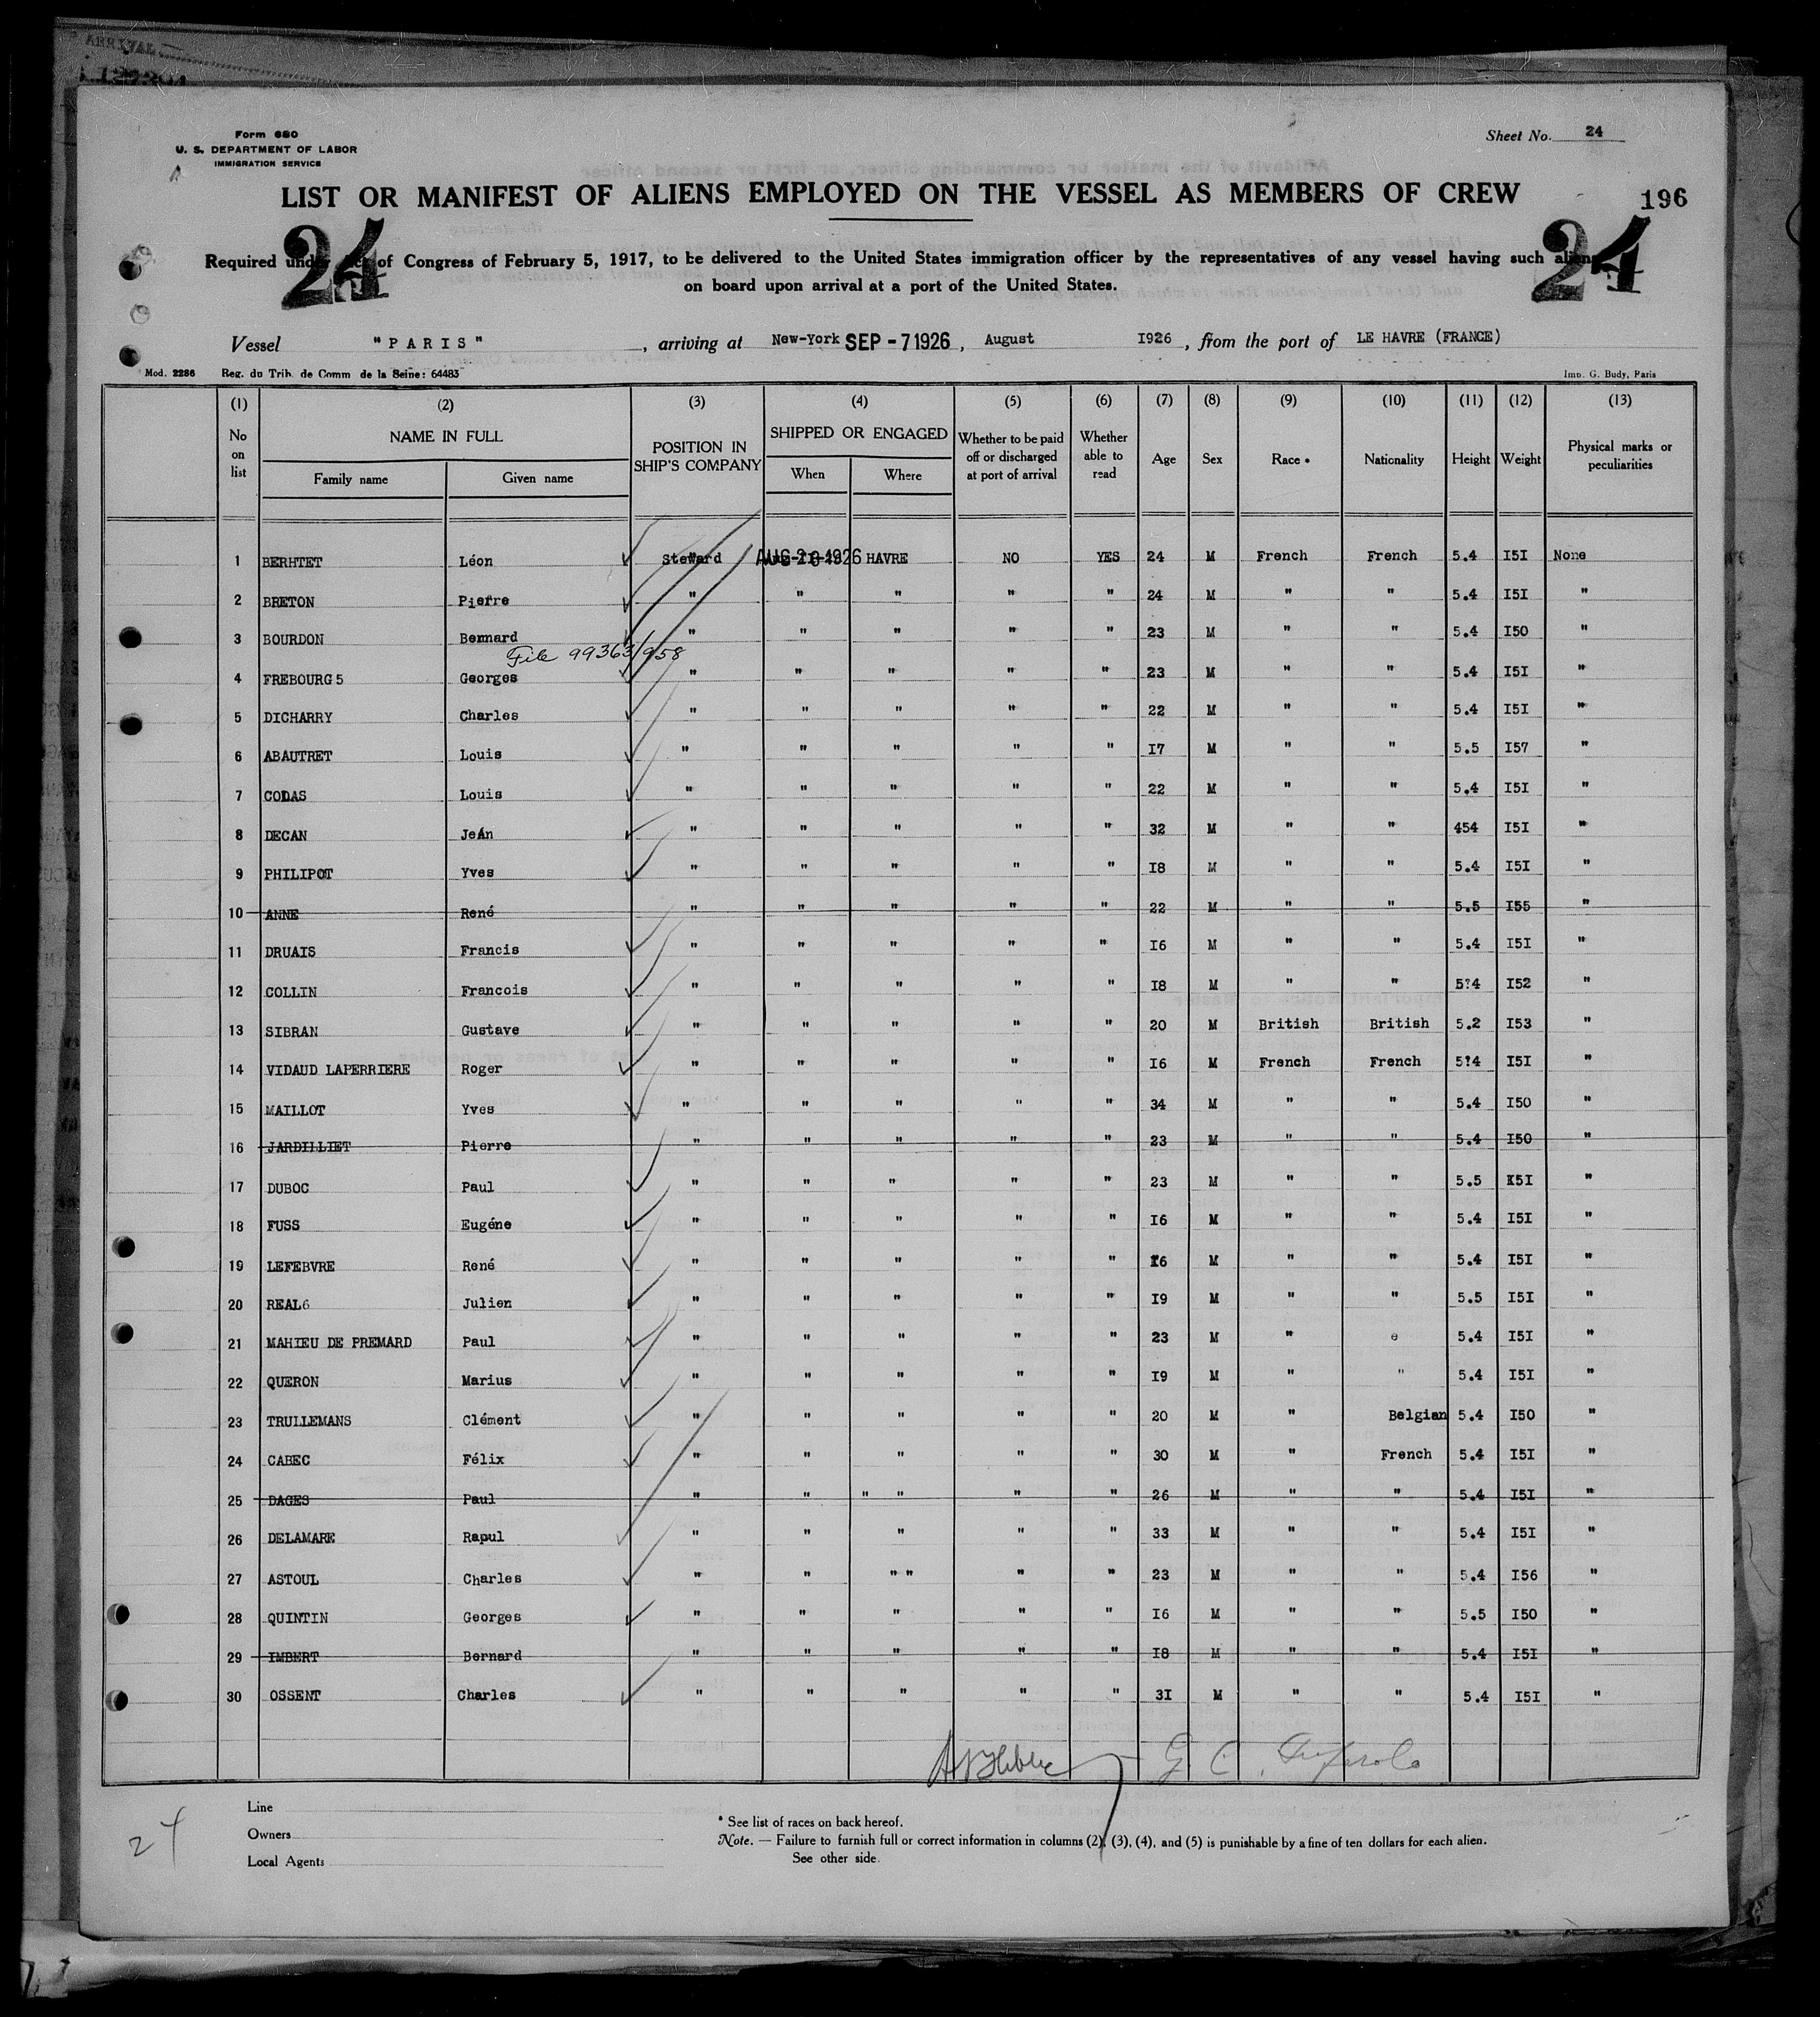 ARRIVAL
Form 680
U. S. DEPARTMENT OF LABOR
IMMIGRATION SERVICE
Sheet No. 24
LIST OR MANIFEST OF ALIENS EMPLOYED ON THE VESSEL AS MEMBERS OF CREW
196
24 24
Required under Act of Congress of February 5, 1917, to be delivered to the United States immigration officer by the representatives of any vessel having such aliens
on board upon arrival at a port of the United States.
Vessel "PARIS", arriving at New-York SEP - 7 1926, August I926, from the port of LE HAVRE (FRANCE)
Mod. 2286 Reg. du Trib. de Comm de la Seine: 64483 Imp. G. Budy, Paris
(1) (2) (3) (4) (5) (6) (7) (8) (9) (10) (11) (12) (13)
No on list NAME IN FULL Family name Given name POSITION IN SHIP'S COMPANY SHIPPED OR ENGAGED When Where Whether to be paid off or discharged at port of arrival Whether able to read Age Sex Race * Nationality Height Weight Physical marks or peculiarities
1 BERHTET Léon Steward AUG 20 1926 HAVRE NO YES 24 M French French 5.4 I5I None
2 BRETON Pierre " " " " " 24 M " " 5.4 I5I "
3 BOURDON Bernard " " " " " 23 M " " 5.4 I50 "
File 99363/958
4 FREBOURG5 Georges " " " " " 23 M " " 5.4 I5I "
5 DICHARRY Charles " " " " " 22 M " " 5.4 I5I "
6 ABAUTRET Louis " " " " " I7 M " " 5.5 I57 "
7 CODAS Louis " " " " " 22 M " " 5.4 I5I "
8 DECAN Jeán " " " " " 32 M " " 454 I5I "
9 PHILIPOT Yves " " " " " I8 M " " 5.4 I5I "
10 ANNE René " " " " " 22 M " " 5.5 I55 "
11 DRUAIS Francis " " " " " I6 M " " 5.4 I5I "
12 COLLIN Francois " " " " " I8 M " " 5?4 I52 "
13 SIBRAN Gustave " " " " " 20 M British British 5.2 I53 "
14 VIDAUD LAPERRIERE Roger " " " " " I6 M French French 5?4 I5I "
15 MAILLOT Yves " " " " " 34 M " " 5.4 I50 "
16 JARDILLIET Pierre " " " " " 23 M " " 5.4 I50 "
17 DUBOC Paul " " " " " 23 M " " 5.5 I5I "
18 FUSS Eugéne " " " " " I6 M " " 5.4 I5I "
19 LEFEBVRE René " " " " " I6 M " " 5.4 I5I "
20 REAL6 Julien " " " " " I9 M " " 5.5 I5I "
21 MAHIEU DE PREMARD Paul " " " " " 23 M " e 5.4 I5I "
22 QUERON Marius " " " " " I9 M " " 5.4 I5I "
23 TRULLEMANS Clément " " " " " 20 M " Belgian 5.4 I50 "
24 CABEC Félix " " " " " 30 M " French 5.4 I5I "
25 DAGES Paul " " " " " " 26 M " " 5.4 I5I "
26 DELAMARE Rapul " " " " " 33 M " " 5.4 I5I "
27 ASTOUL Charles " " " " " " 23 M " " 5.4 I56 "
28 QUINTIN Georges " " " " " I6 M " " 5.5 I50 "
29 IMBERT Bernard " " " " " I8 M " " 5.4 I5I "
30 OSSENT Charles " " " " " 3I M " " 5.4 I5I "
Line
Owners
Local Agents
24
* See list of races on back hereof.
Note. — Failure to furnish full or correct information in columns (2), (3), (4), and (5) is punishable by a fine of ten dollars for each alien.
See other side.